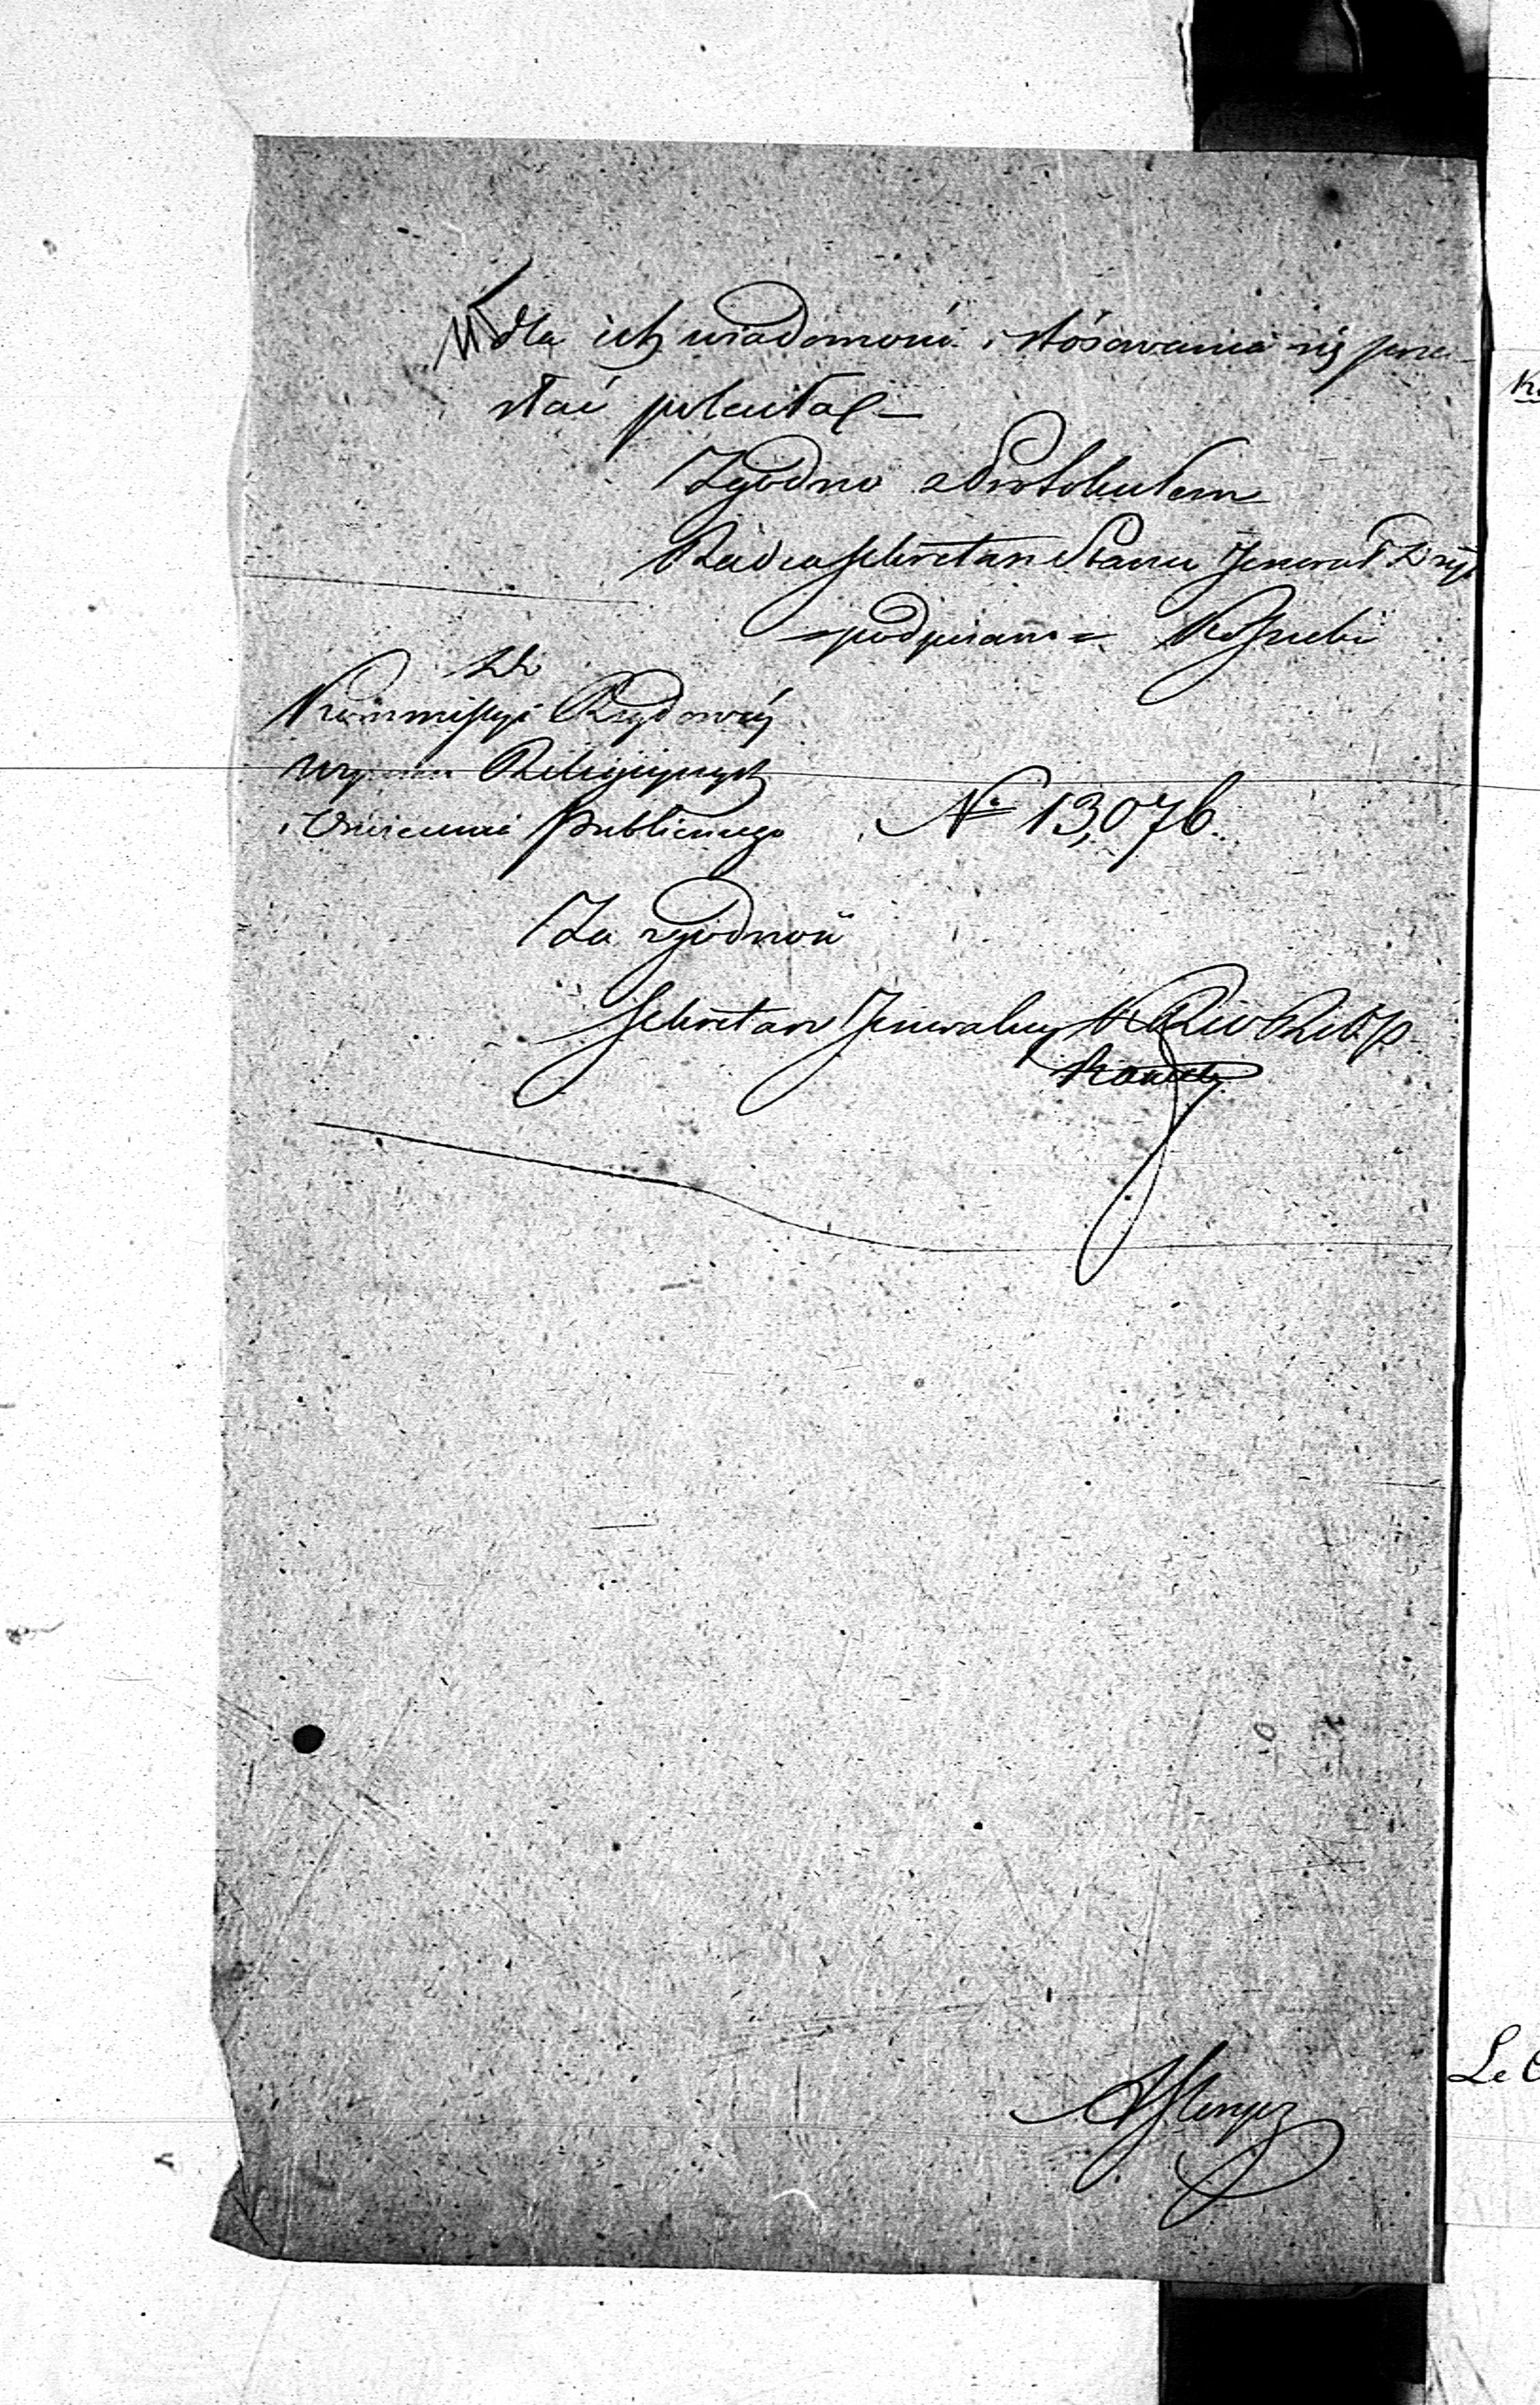 dla ich wiadomości i stósowania się prze-
słać poleciła. –
Zgodno z Protokułem
Radca Sekretarz Stanu Jenerał Dryi
podpisano Kossecki
Do
Kommissyi Rządowéy
Wyznań Religiynych
i Oświecenia Publicznego
№ 13,076.
Za zgodność
Sekretarz Jeneralny
Le